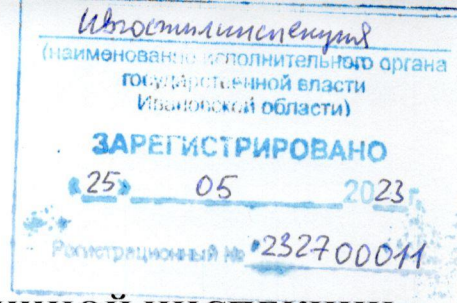 Ивгосжилинспекция
(наименование исполнительного органа
государственной власти
Ивановской области)
ЗАРЕГИСТРИРОВАНО
«25» 05 2023 г.
Регистрационный № 232700011